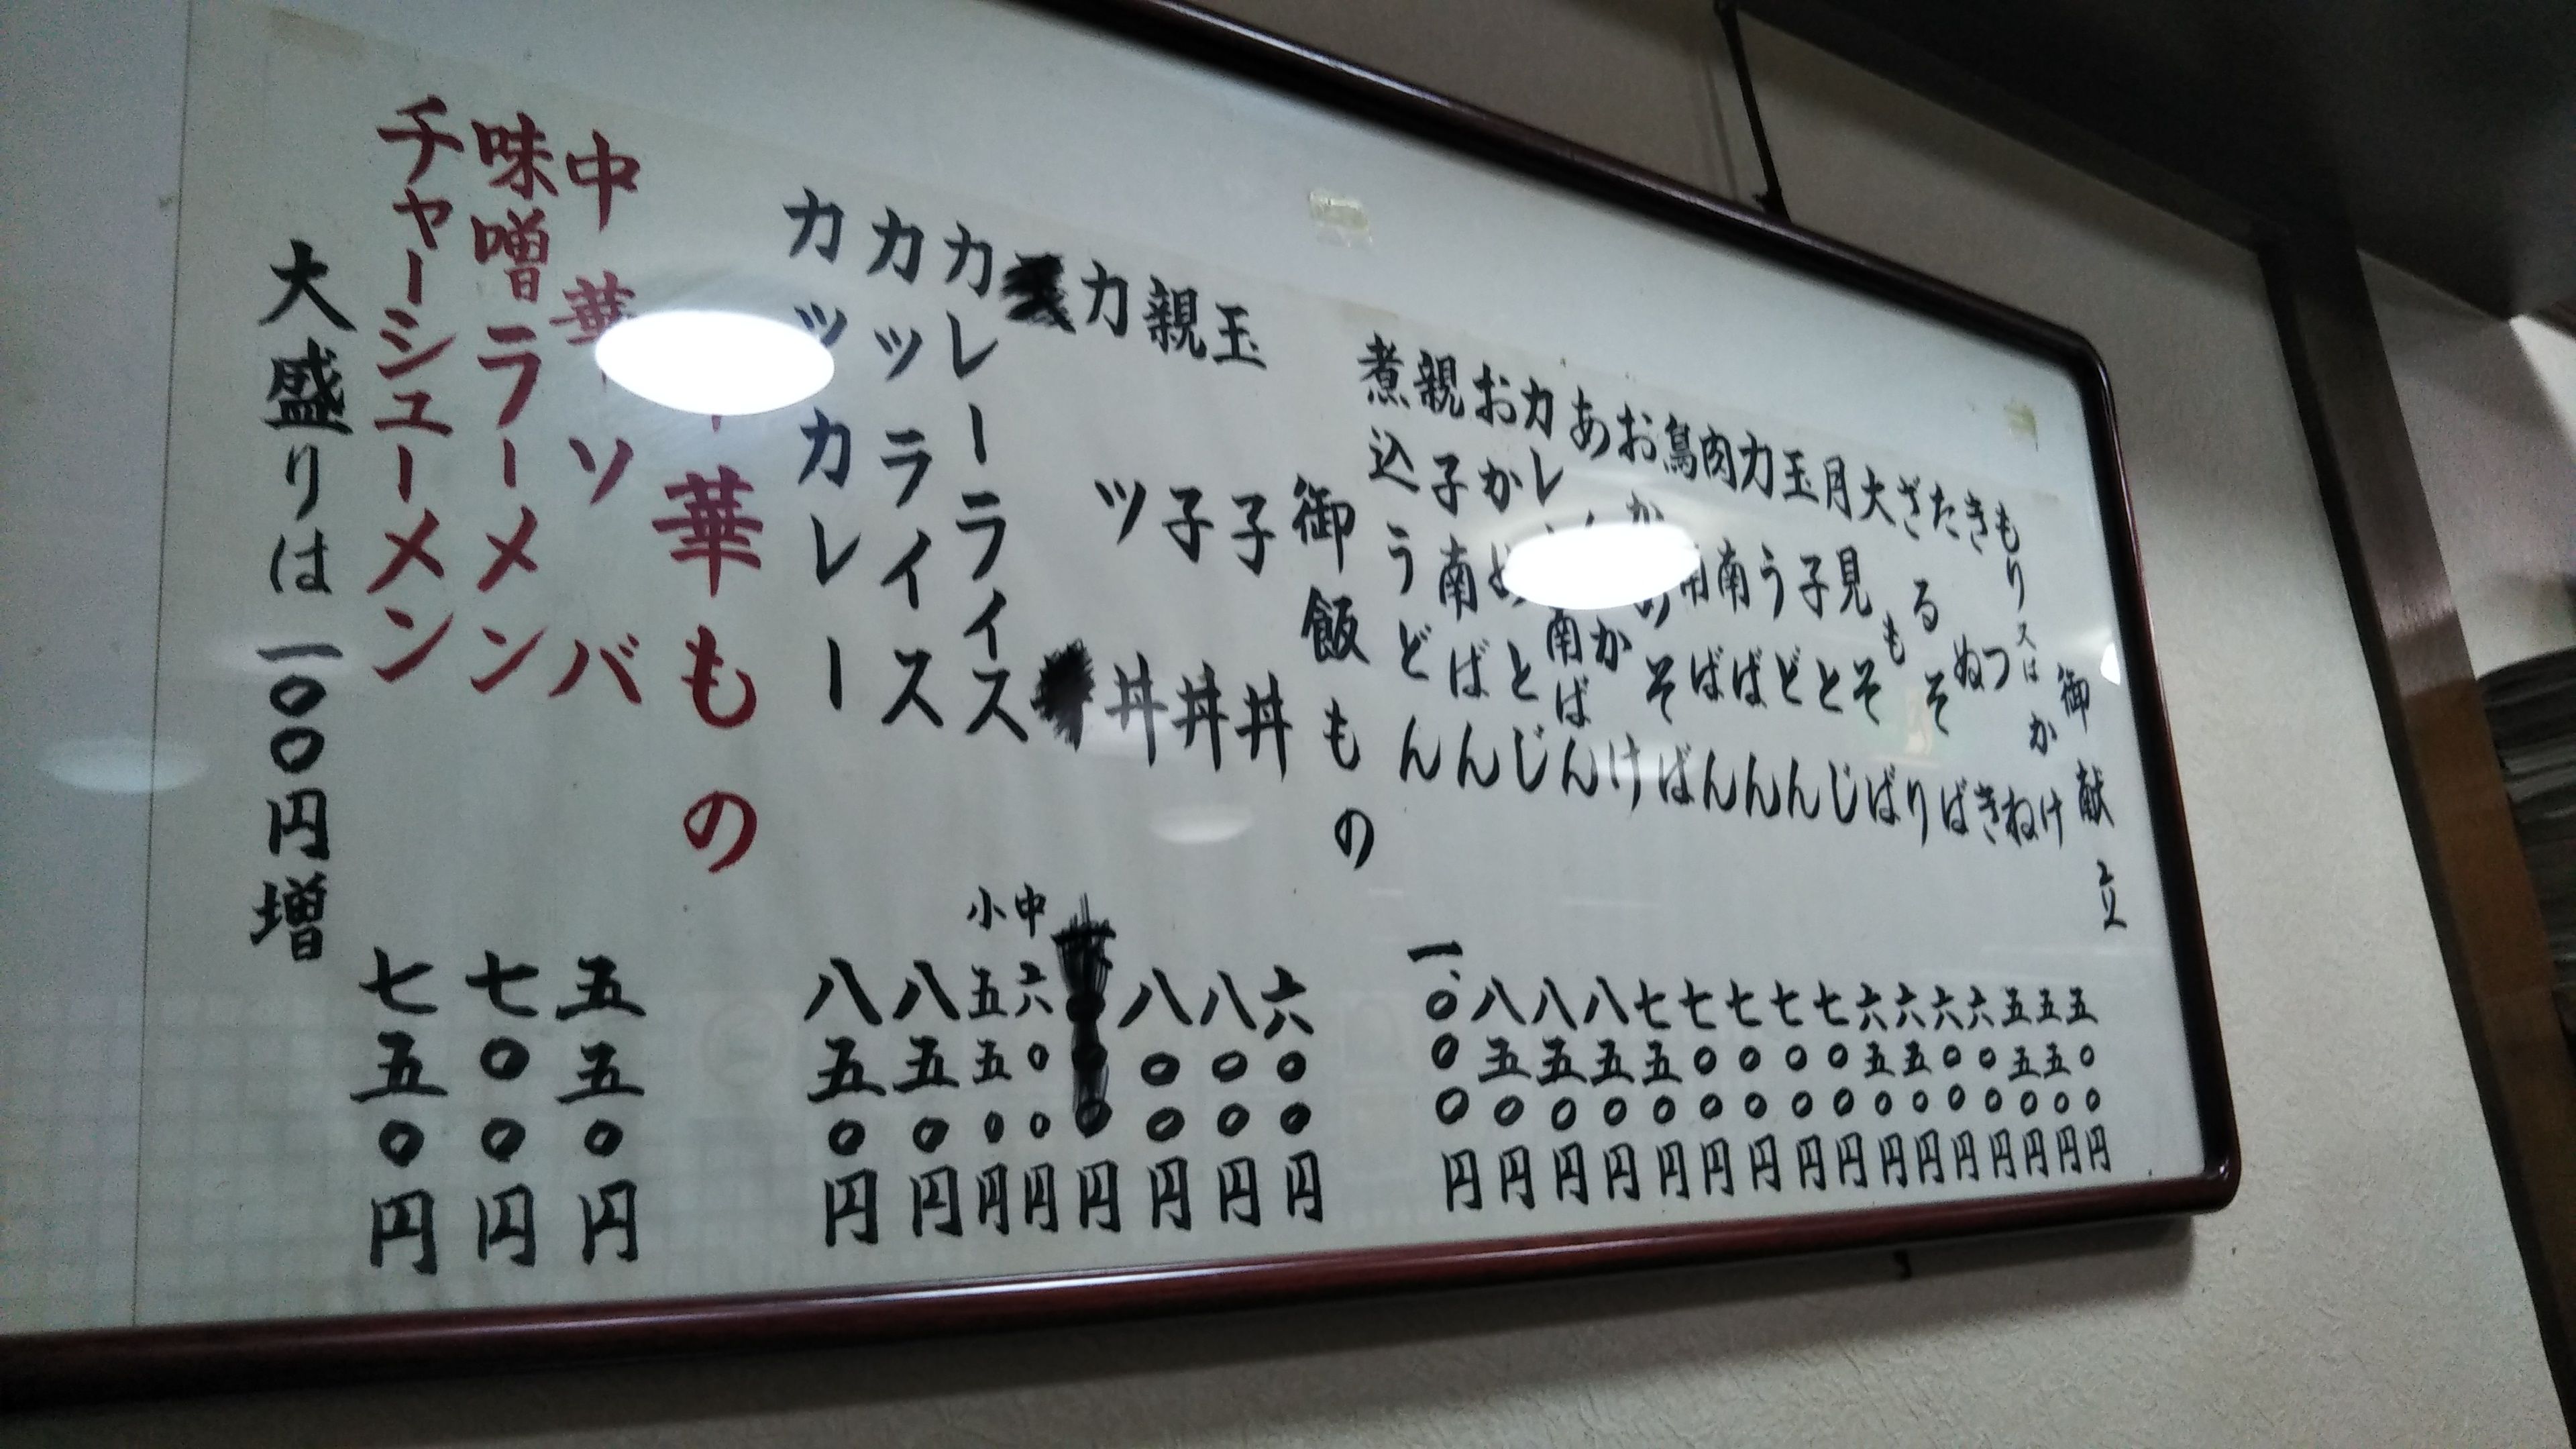 御献立
もり又はかけ 五〇〇円
きつね 五五〇円
たぬき 五五〇円
ざるそば 六〇〇円
大もり 六〇〇円
月見そば 六五〇円
玉子とじ 六五〇円
力うどん 七〇〇円
肉南ばん 七〇〇円
鳥南ばん 七〇〇円
おかめそば 七〇〇円
あんかけ 七五〇円
カレー南ばん 八五〇円
おかめとじ 八五〇円
親子南ばん 八五〇円
煮込うどん 一、〇〇〇円
御飯もの
玉子丼 六〇〇円
親子丼 八〇〇円
カツ丼 八〇〇円
円
カレーライス 中六〇〇円
小五五〇円
カツライス 八五〇円
カツカレー 八五〇円
中華もの
中華ソバ 五五〇円
味噌ラーメン 七〇〇円
チャーシューメン 七五〇円
大盛りは一〇〇円増